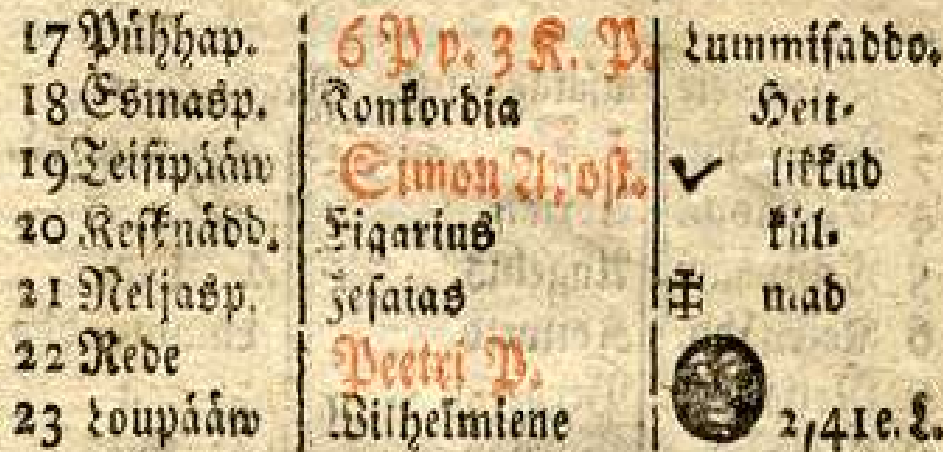 17 Pühhap. 6 P p. 3 K. P. Lummisaddo.
18 Esmasp. Konkordia Heit-
19 Teisipääw Simon Apost. likkud
20 Kesknädd. Figarius kül-
21 Neljasp. Jesaias mad
22 Rede Peetri P.
23 Loupääw Wilhelmiene 2,41 e. L.